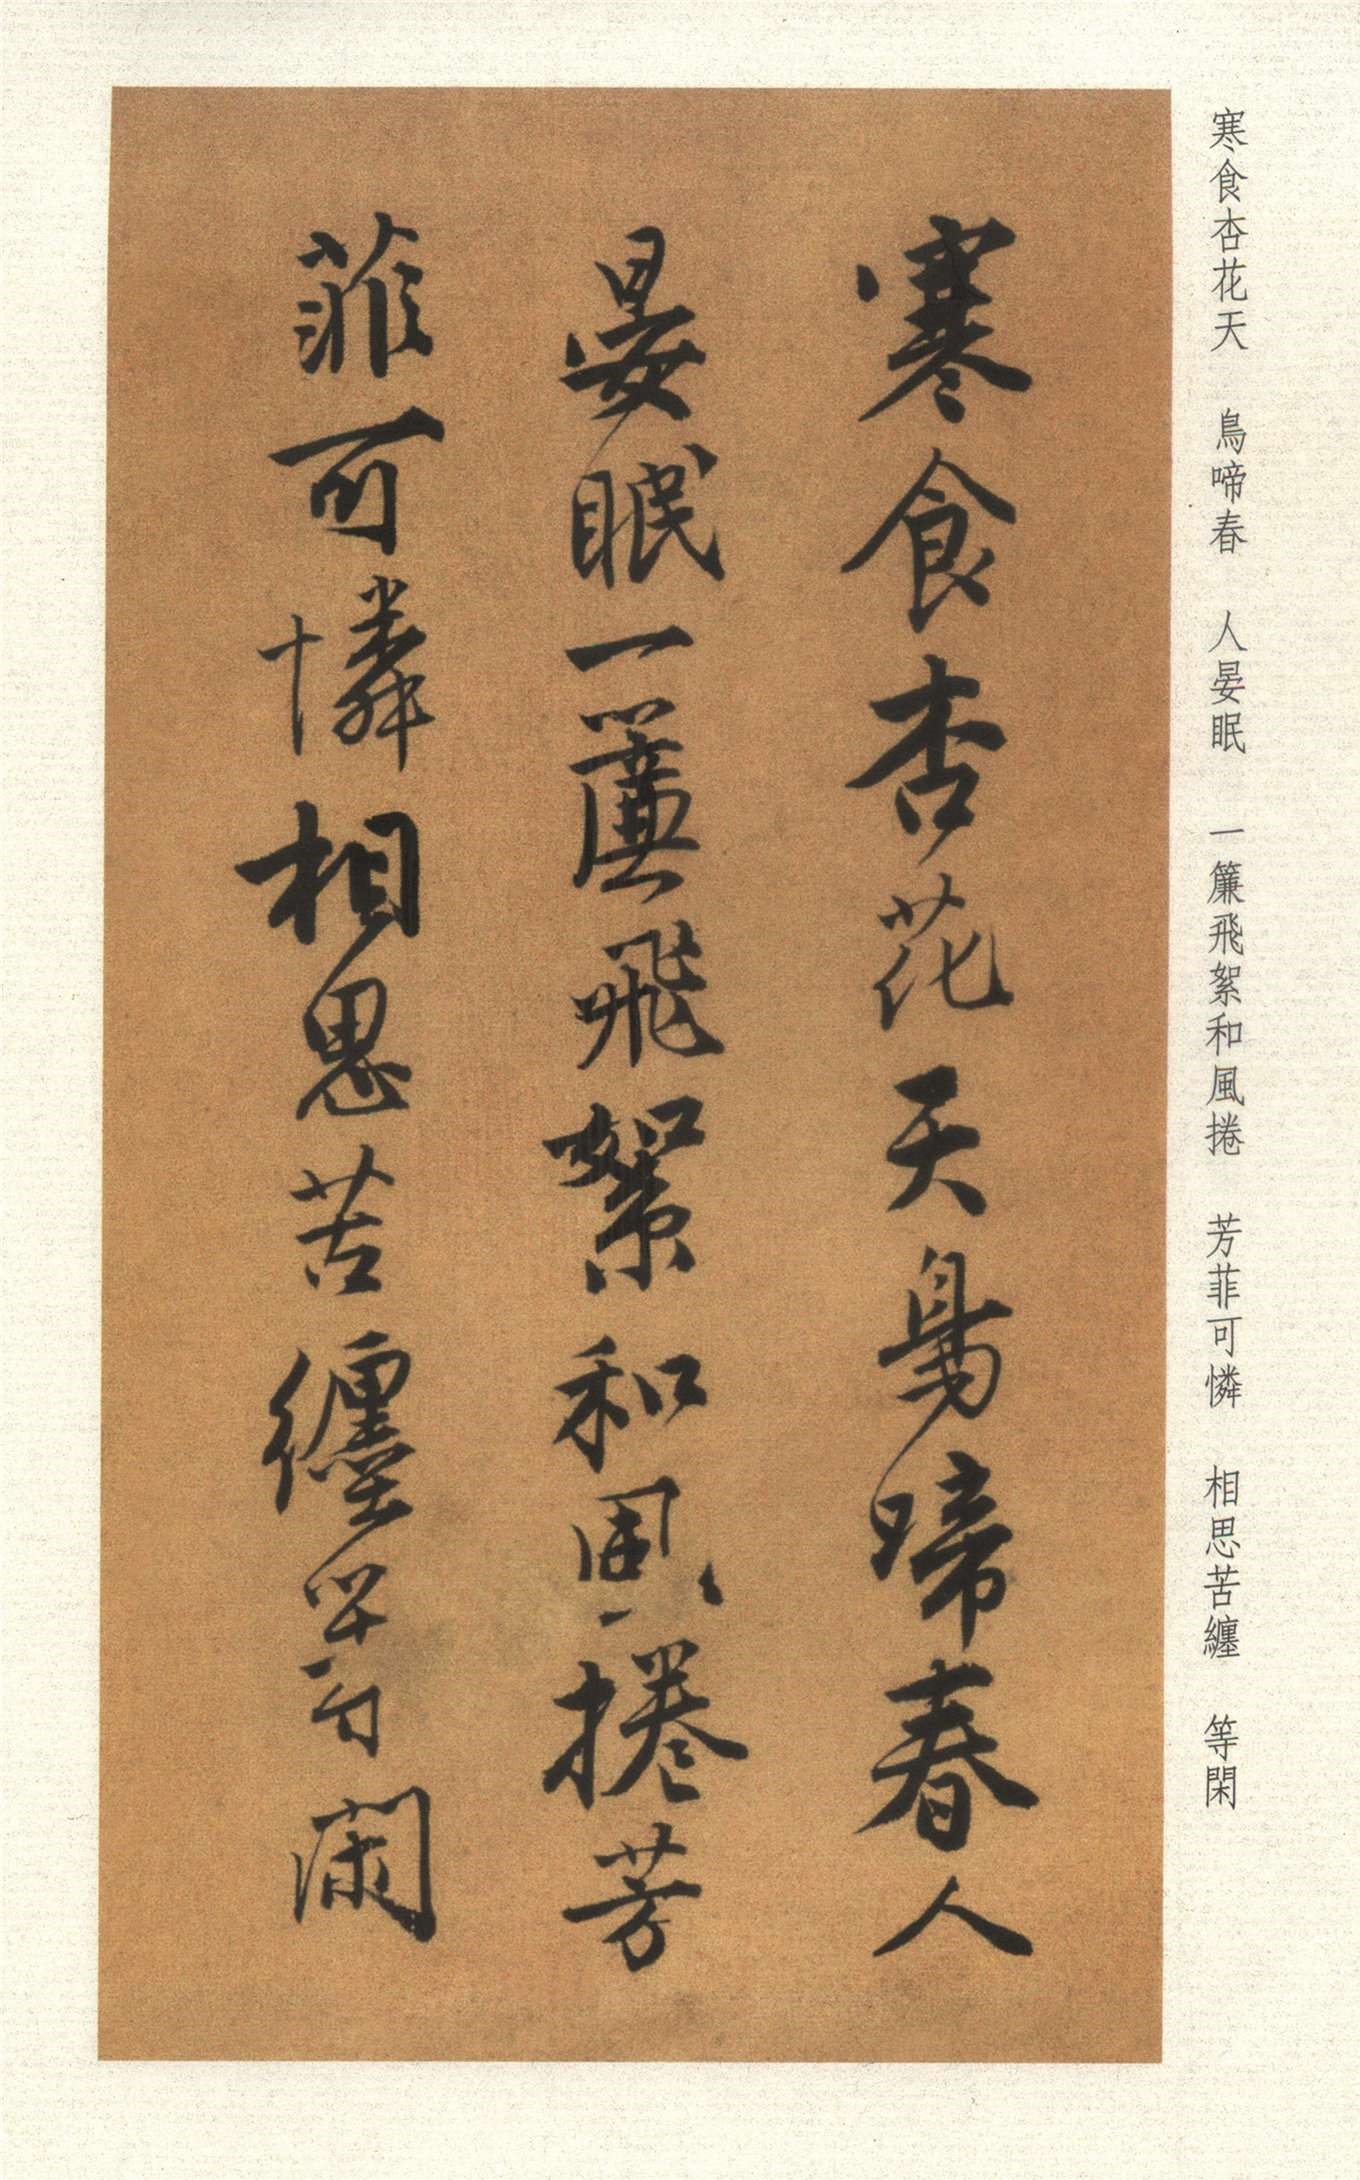 寒食杏花天　鳥啼春　人晏眠　一簾飛絮和風捲　芳菲可憐　相思苦纏　等閑
寒食杏花天鳥啼春人
晏眠一簾飛絮和風捲芳
菲可憐相思苦纏等閑